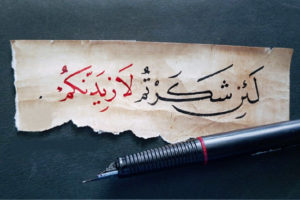 لَئِنْ شَكَرْتُمْ لَأَزِيدَنَّكُمْ.